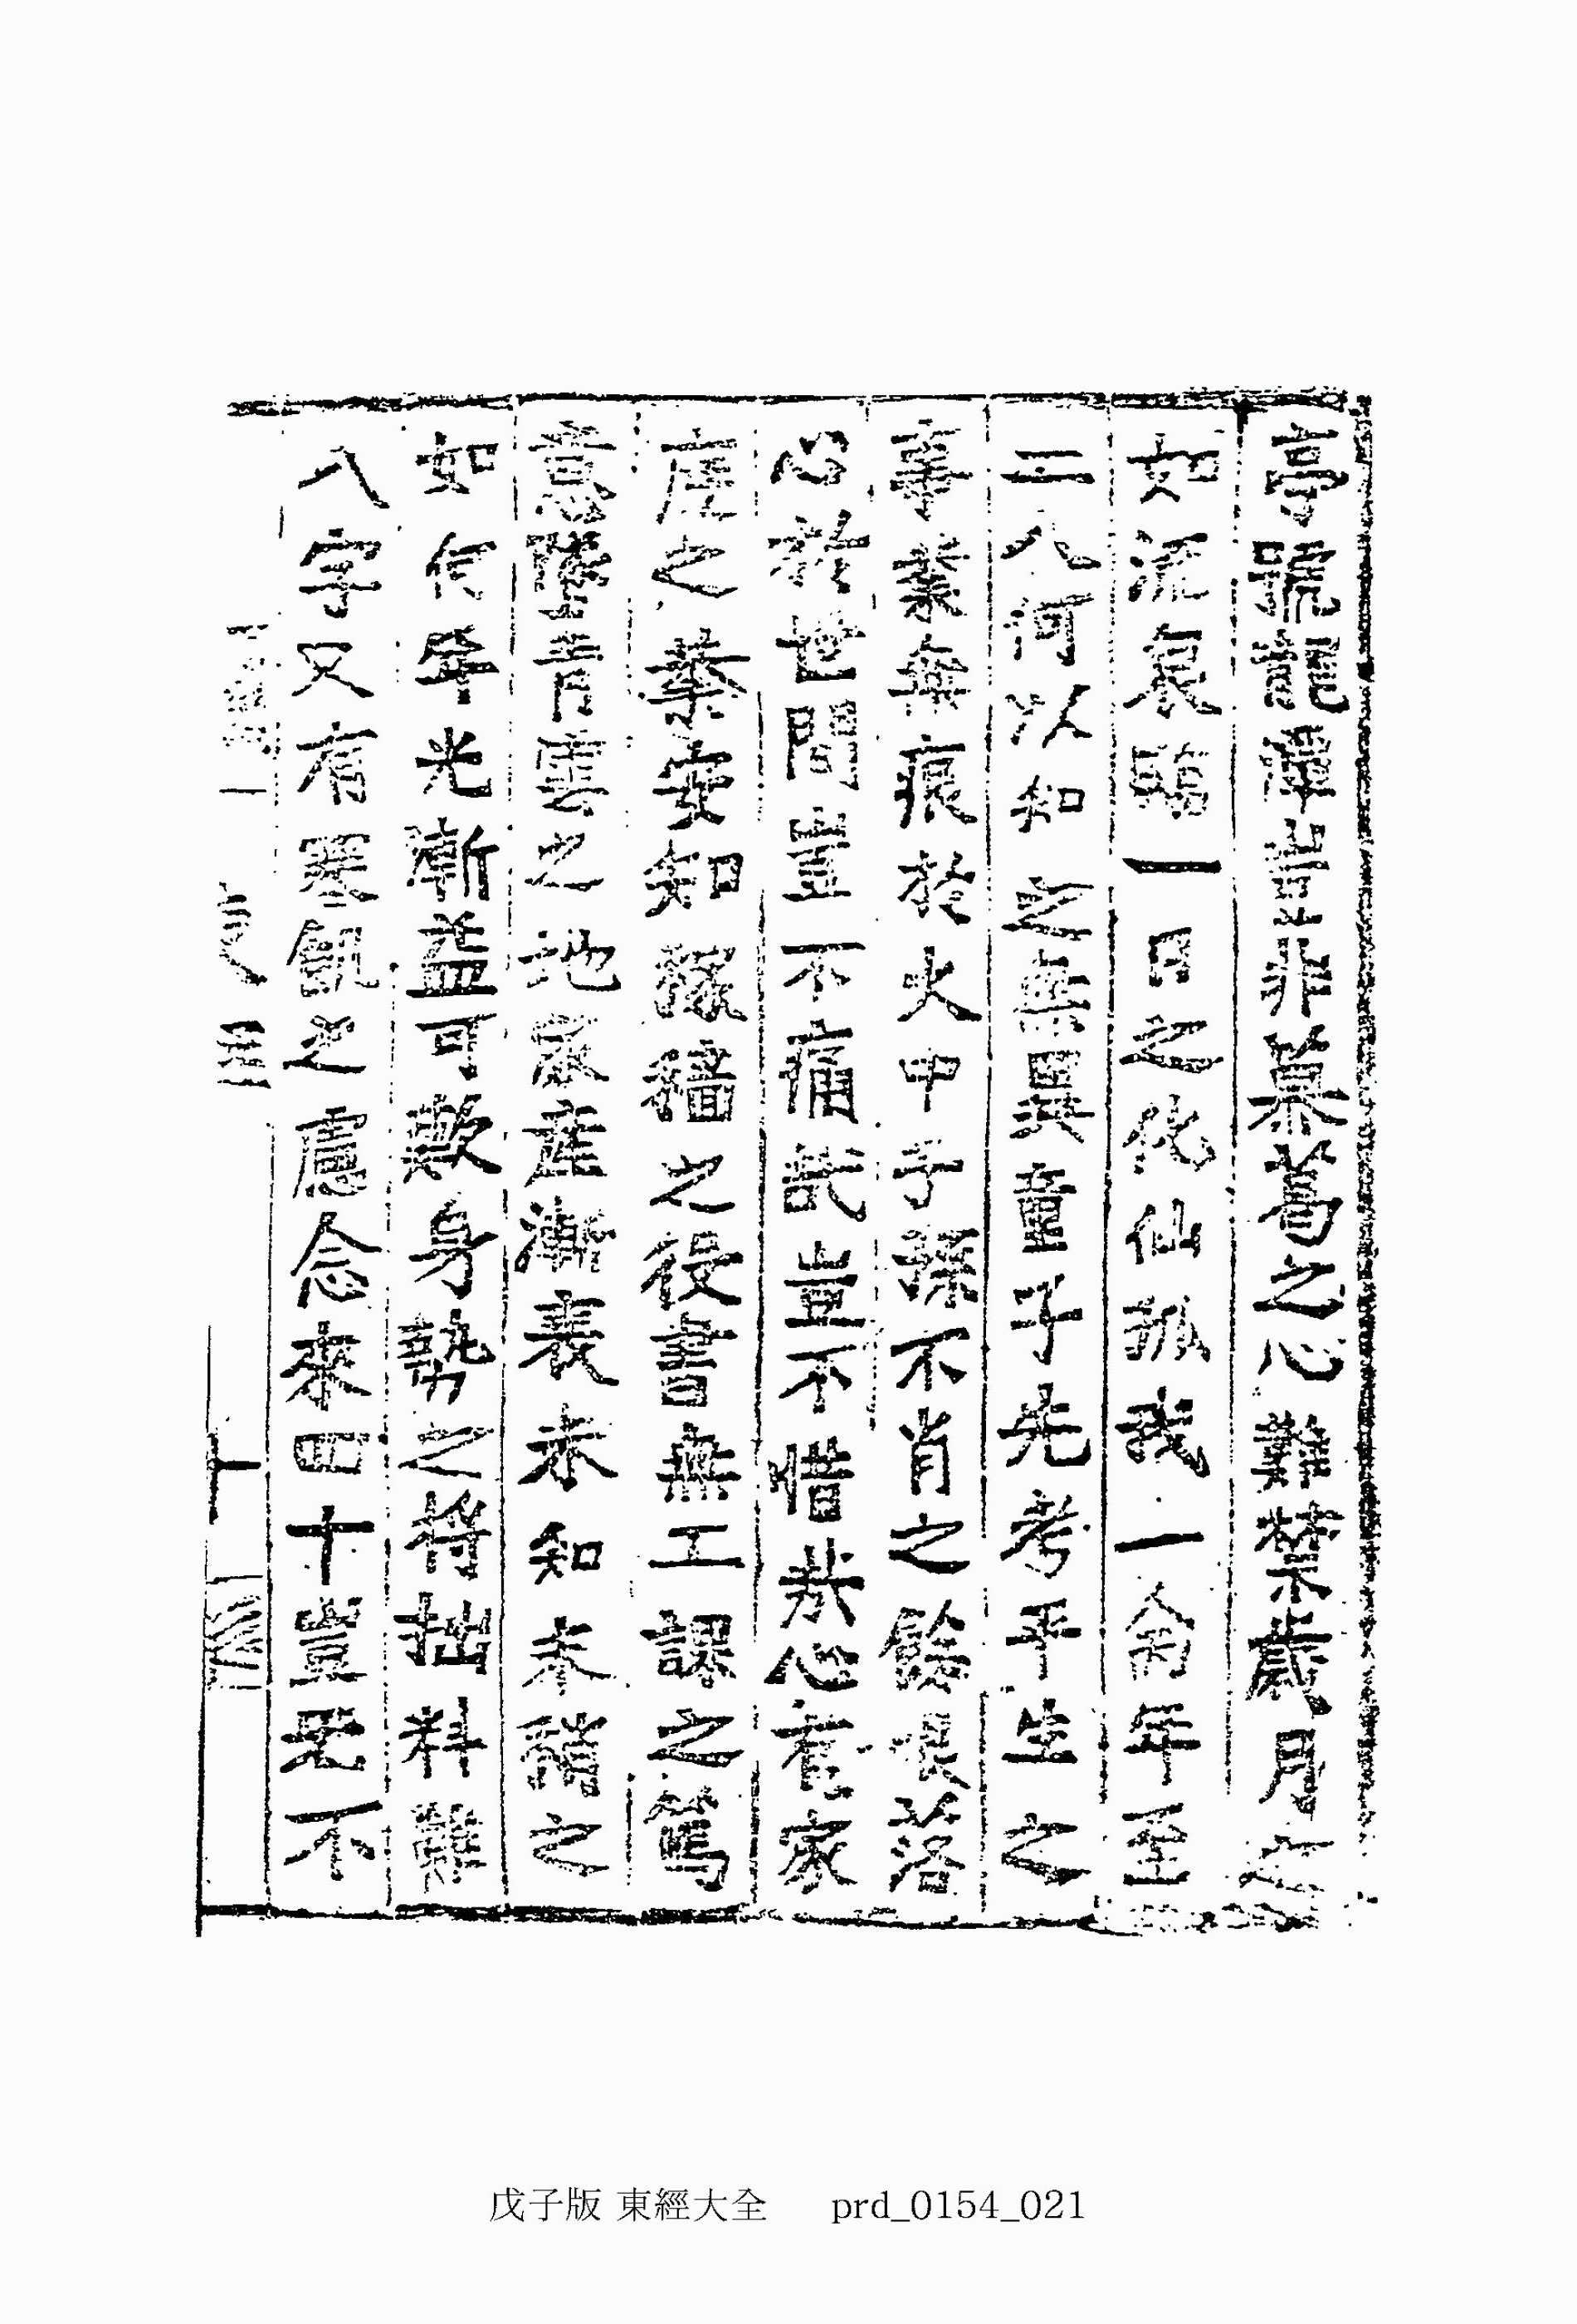 亭號龍潭豈非慕葛之心難禁歲月之
如流哀臨一日之化仙孤我一命年至
二八何以知之無異童子先考平生之
事業無痕於火中子孫不肖之餘恨落
心於世間豈不痛哉豈不惜哉心有家
庭之業安知稼穡之役書無工課之篤
意墜青雲之地家産漸衰未知末稍之
如何年光漸益可歎身勢之將拙料難
八字又有寒飢之慮念來四十豈无不
十
戊子版 東經大全 prd_0154_021